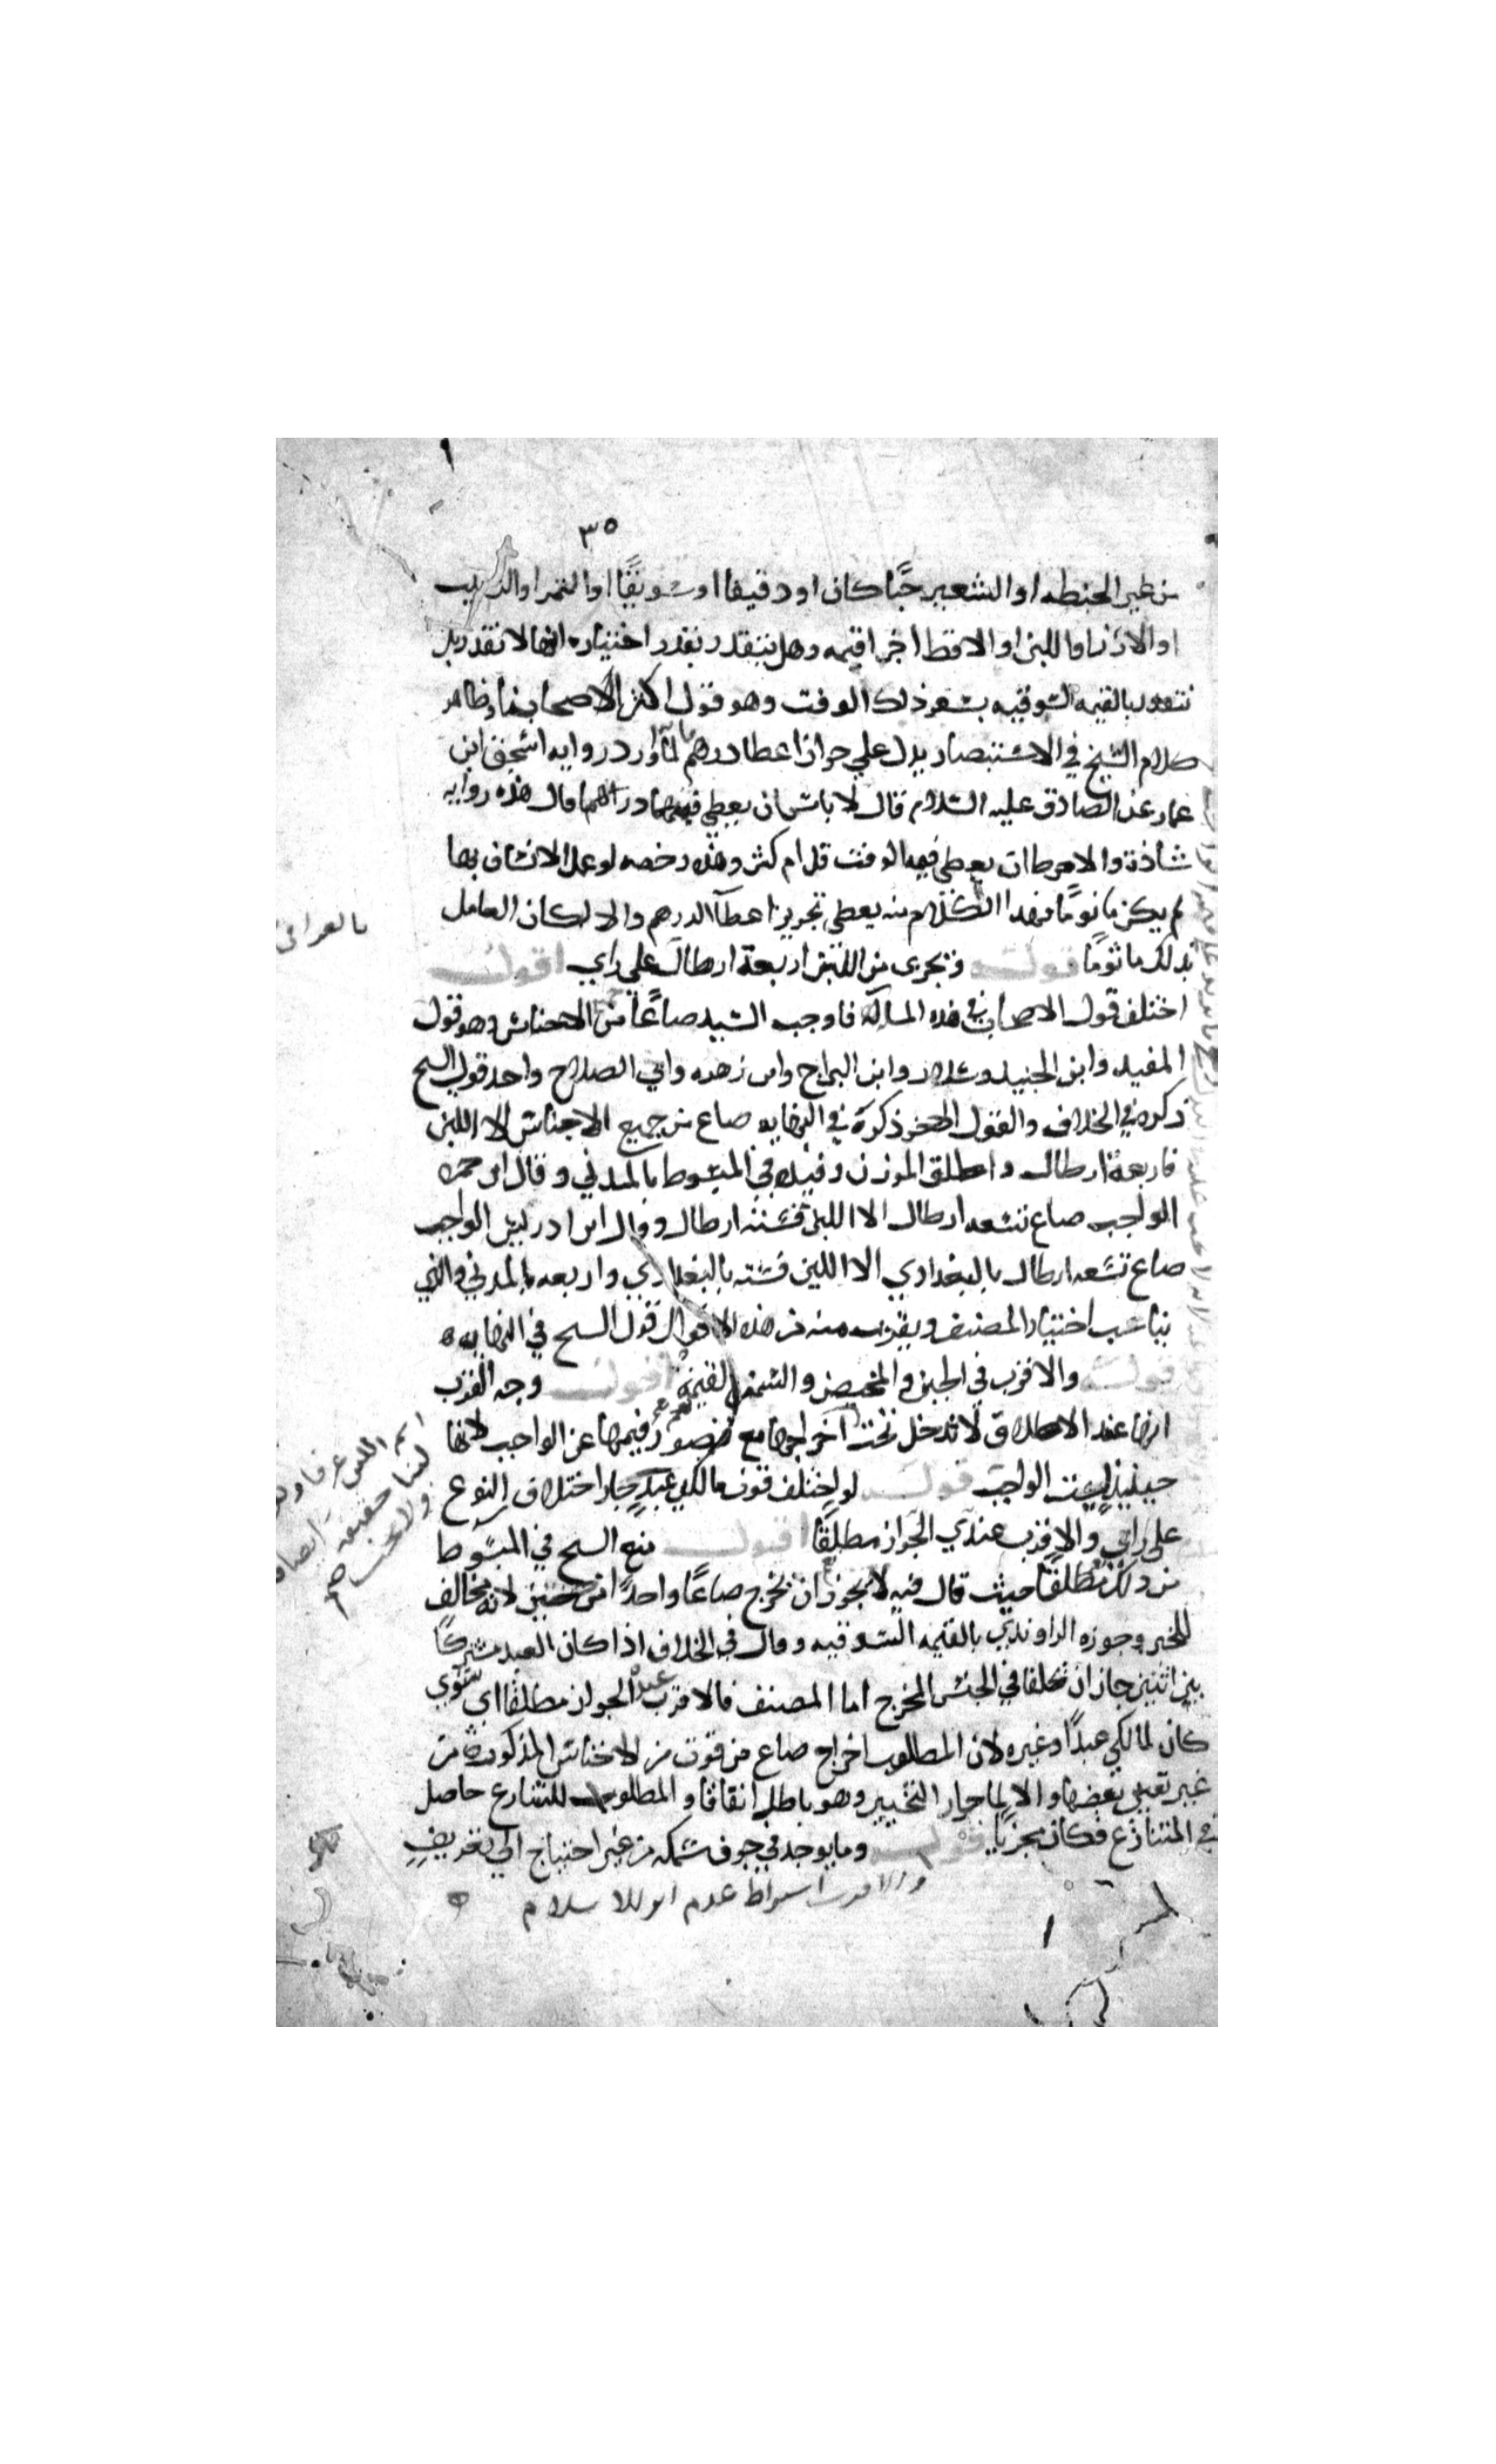 ٣٥
من غير الحنطه او الشعير حبًا كان او دقيقا او سويقًا او التمر او الزبيب
او الارز او اللبن او الاقط اخرا قيمه وهل يتقدر بقدر اختياره انها لا تقدر بل
بالقيمه السوقيه بسعر ذلك الوقت وهو قول اكثر الاصحاب وظاهر
كلام الشيخ في الاستبصار يدل علي جواز اعطا درهم لما اورد روايه اسحق ابن
عمار عن الصادق عليه السلام قال لا باس ان يعطي قيمتها درهما قال هذه روايه
شاذة والاحوط ان يعطي قيمه الوقت قل ام كثر وهذه رخصه لو عمل الانسان بها
لم يكن ماثومًا فهذا الكلام منه يعطي تجويز اعطآ الدرهم والا لكان العامل
بذلك ماثومًا قولـه ويجزي من اللبن اربعة ارطال علي راي اقول
اختلف قول الاصحاب في هذه المسالة فاوجب السيد صاعًا من جميع الاجناس وهو قول
المفيد وابن الجنيد وسلار وابن البراج وابن زهره وابي الصلاح واحد قولي الشيخ
ذكره في الخلاف والقول الاخر ذكره في النهايه صاع من جميع الاجناس الا اللبن
فاربعة ارطال واطلق الوزن وقيده في المبسوط بالمدني وقال ابن حمزه
الواجب صاع تسعه ارطال الا اللبن فستة ارطال وقال ابن ادريس الواجب
صاع تسعه ارطال بالبغدادي الا اللبن فسته بالبغدادي واربعه بالمدني والذي
يناسب اختيار المصنف ويقرب منه من هذه الاقوال قول الشيخ في النهايه
قولـه والاقرب في الجبن والمخيض والسمن القيمة اقول وجه القرب
انها عند الاطلاق لا تدخل تحت اخراجها مع قصور قيمها عن الواجب لانها
حينئذٍ ليست الواجب قولـه لو اختلف قوت مالكي عبدٍ جاز اختلاف النوع
علي راي والاقرب عندي الجواز مطلقًا اقول منع الشيخ في المبسوط
من ذلك مطلقًا حيث قال فيه لا يجوز ان يخرج صاعًا واحدًا من جنسين لانه مخالف
للخبر وجوزه الراوندي بالقيمه السوقيه وقال في الخلاف اذا كان العبد مشتركًا
بين اثنين جاز ان يختلفا في الجنس المخرج اما المصنف فالاقرب عنده الجواز مطلقًا اي سوي
كان لمالكي عبدًا وغيره لان المطلوب اخراج صاع من قوت من الاجناس المذكورة من
غير تعيين بعضها والا لما جاز التخيير وهو باطل اتفاقًا والمطلوب للشارع حاصل
في المتنازع فكان مجزيًا قولـه وما يوجد في جوف سمكه من غير احتياج الي تعريفٍ
والاقرب اشتراط عدم اثر الاسلام
بالعراقي